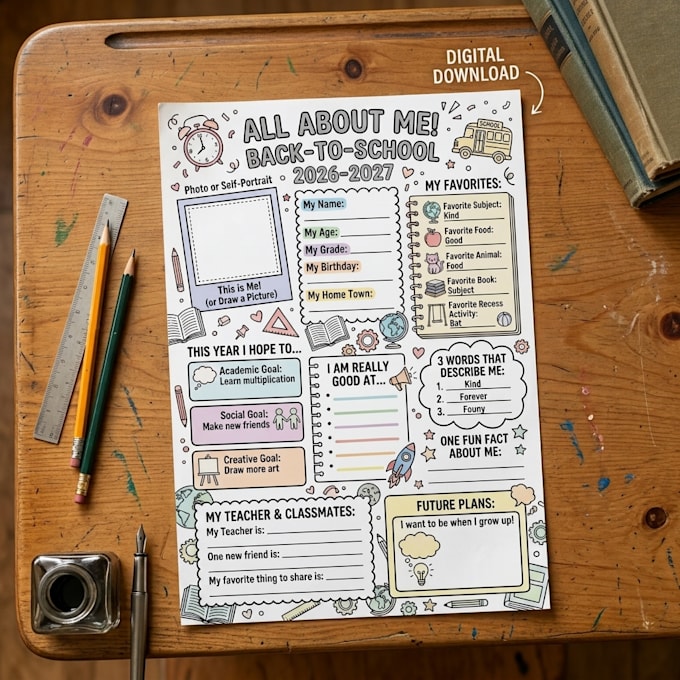 DIGITAL
DOWNLOAD
ALL ABOUT ME!
BACK-TO-SCHOOL
2026-2027
SCHOOL
Photo or Self-Portrait
This is Me!
(or Draw a Picture)
My Name:
My Age:
My Grade:
My Birthday:
My Home Town:
MY FAVORITES:
Favorite Subject:
Kind
Favorite Food:
Good
Favorite Animal:
Food
Favorite Book:
Subject
Favorite Recess
Activity:
Bat
THIS YEAR I HOPE TO...
Academic Goal:
Learn multiplication
Social Goal:
Make new friends
Creative Goal:
Draw more art
I AM REALLY
GOOD AT...
3 WORDS THAT
DESCRIBE ME:
1. Kind
2. Forever
3. Founy
ONE FUN FACT
ABOUT ME:
MY TEACHER & CLASSMATES:
My Teacher is:
One new friend is:
My favorite thing to share is:
FUTURE PLANS:
I want to be when I grow up!